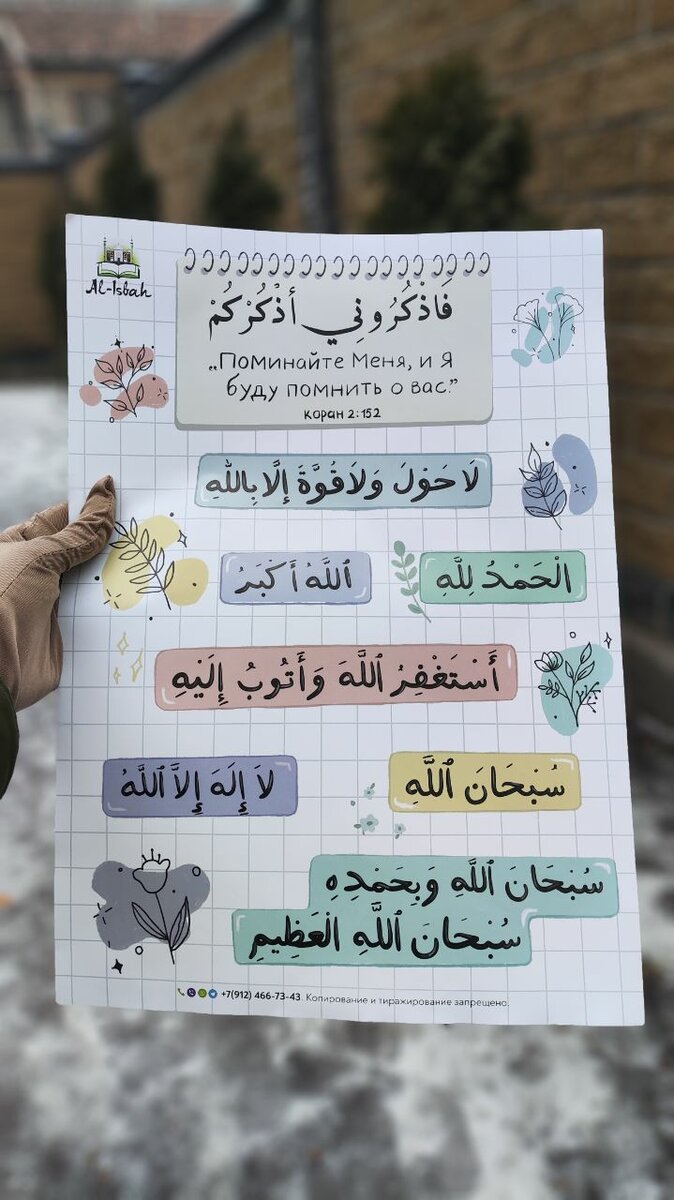 Al-Isbah
فَاذْكُرُونِي أَذْكُرْكُمْ
„Поминайте Меня, и Я
буду помнить о вас.”
Коран 2:152
لَا حَوْلَ وَلَا قُوَّةَ إِلَّا بِاللهِ
الْحَمْدُ لِلَّهِ
ٱللَّهُ أَكْبَرُ
أَسْتَغْفِرُ ٱللَّهَ وَأَتُوبُ إِلَيْهِ
سُبْحَانَ ٱللَّهِ
لاَ إِلَهَ إِلاَّ ٱللَّهُ
سُبْحَانَ ٱللَّهِ وَبِحَمْدِهِ
سُبْحَانَ ٱللَّهِ الْعَظِيمِ
+7(912) 466-73-43. Копирование и тиражирование запрещено.